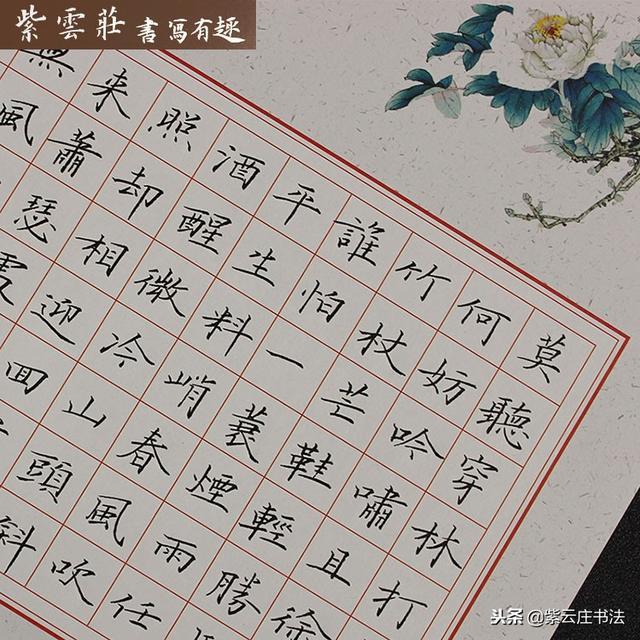 紫雲莊 書寫有趣
莫聽穿林打
何妨吟嘯且徐
竹杖芒鞋輕勝
誰怕一蓑煙雨任
平生料峭春風吹
酒醒微冷山頭斜
照却相迎囬
来蕭瑟處
無風
头条 @紫云庄书法